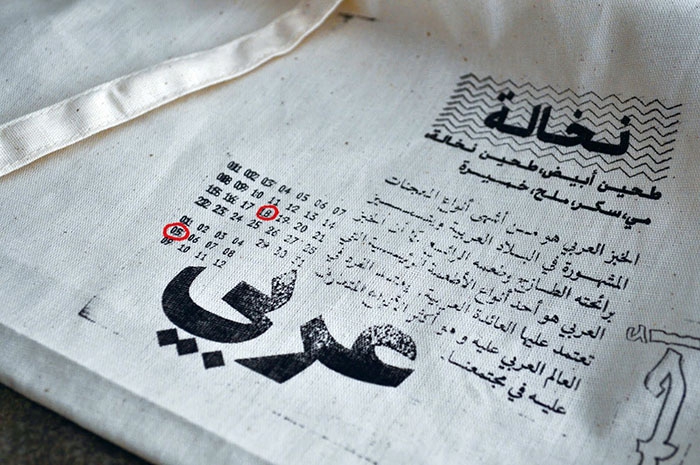 نخالة
طحين أبيض، طحين نخالة
مي، سكر، ملح، خميرة
الخبز العربي هو من أشهى أنواع المعجنات
المشهورة في البلاد العربية ويتميز
برائحته الطازج وطعمه الرائع. إن الخبز
العربي هو أحد أنواع الأطعمة الرئيسية التي
تعتمد عليها العائدة العربية. يعتمد الفرد في
العالم العربي عليه و هو أكثر المتعارف
عليه في مجتمعنا.
01 02 03 04 05 06 07
08 09 10 11 12 13 14
15 16 17 18 19 20 21
22 23 24 25 26 27 28
29 30 31
01 02 03 04
05 06 07 08
09 10 11 12
عربي